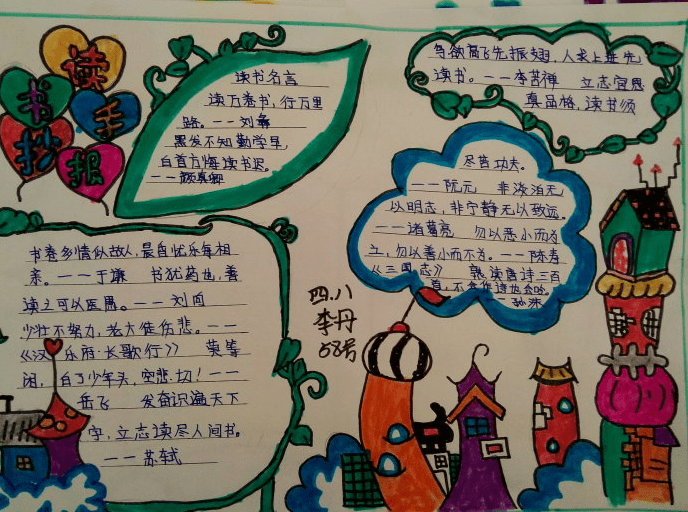 读书手抄报
读书名言
读万卷书，行万里
路。——刘彝
黑发不知勤学早，
白首方悔读书迟。
——颜真卿
鸟欲高飞先振翅，人求上进先
读书。——李苦禅 立志宜思
真品格，读书须
尽苦功夫。
——阮元 非淡泊无
以明志，非宁静无以致远。
——诸葛亮 勿以恶小而为
之，勿以善小而不为。——陈寿
《三国志》 熟读唐诗三百
首，不会作诗也会吟。
——孙洙
书卷多情似故人，晨昏忧乐每相
亲。——于谦 书犹药也，善
读之可以医愚。——刘向
少壮不努力，老大徒伤悲。——
《汉 乐府·长歌行》 莫等
闲，白了少年头，空悲切！——
岳飞 发奋识遍天下
字，立志读尽人间书。
——苏轼
四.八
李丹
58号